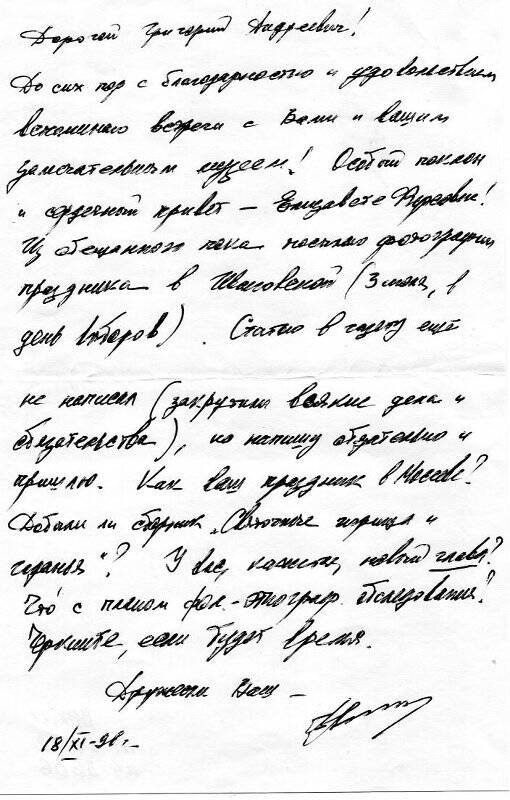 Дорогой Григорий Андреевич!
До сих пор с благодарностью и удовольствием
вспоминаю встречи с Вами и вашим
замечательным музеем! Особый поклон
и сердечный привет — Елизавете!
Из обещанного пока посылаю фотографии
праздника в (3 июля, в
день выборов). Статью в газету ещё
не написал (закрутили всякие дела и
обязательства), но напишу обязательно и
пришлю. Как ваш праздник в Москве?
Добыли ли сборник „Святочные игрища и
гаданья"? У вас, кажется, новый глава?
Что с планом фольк.-этнограф. обследования?
Черкните, если будет время.
Дружески Ваш —
18/XI-91г.